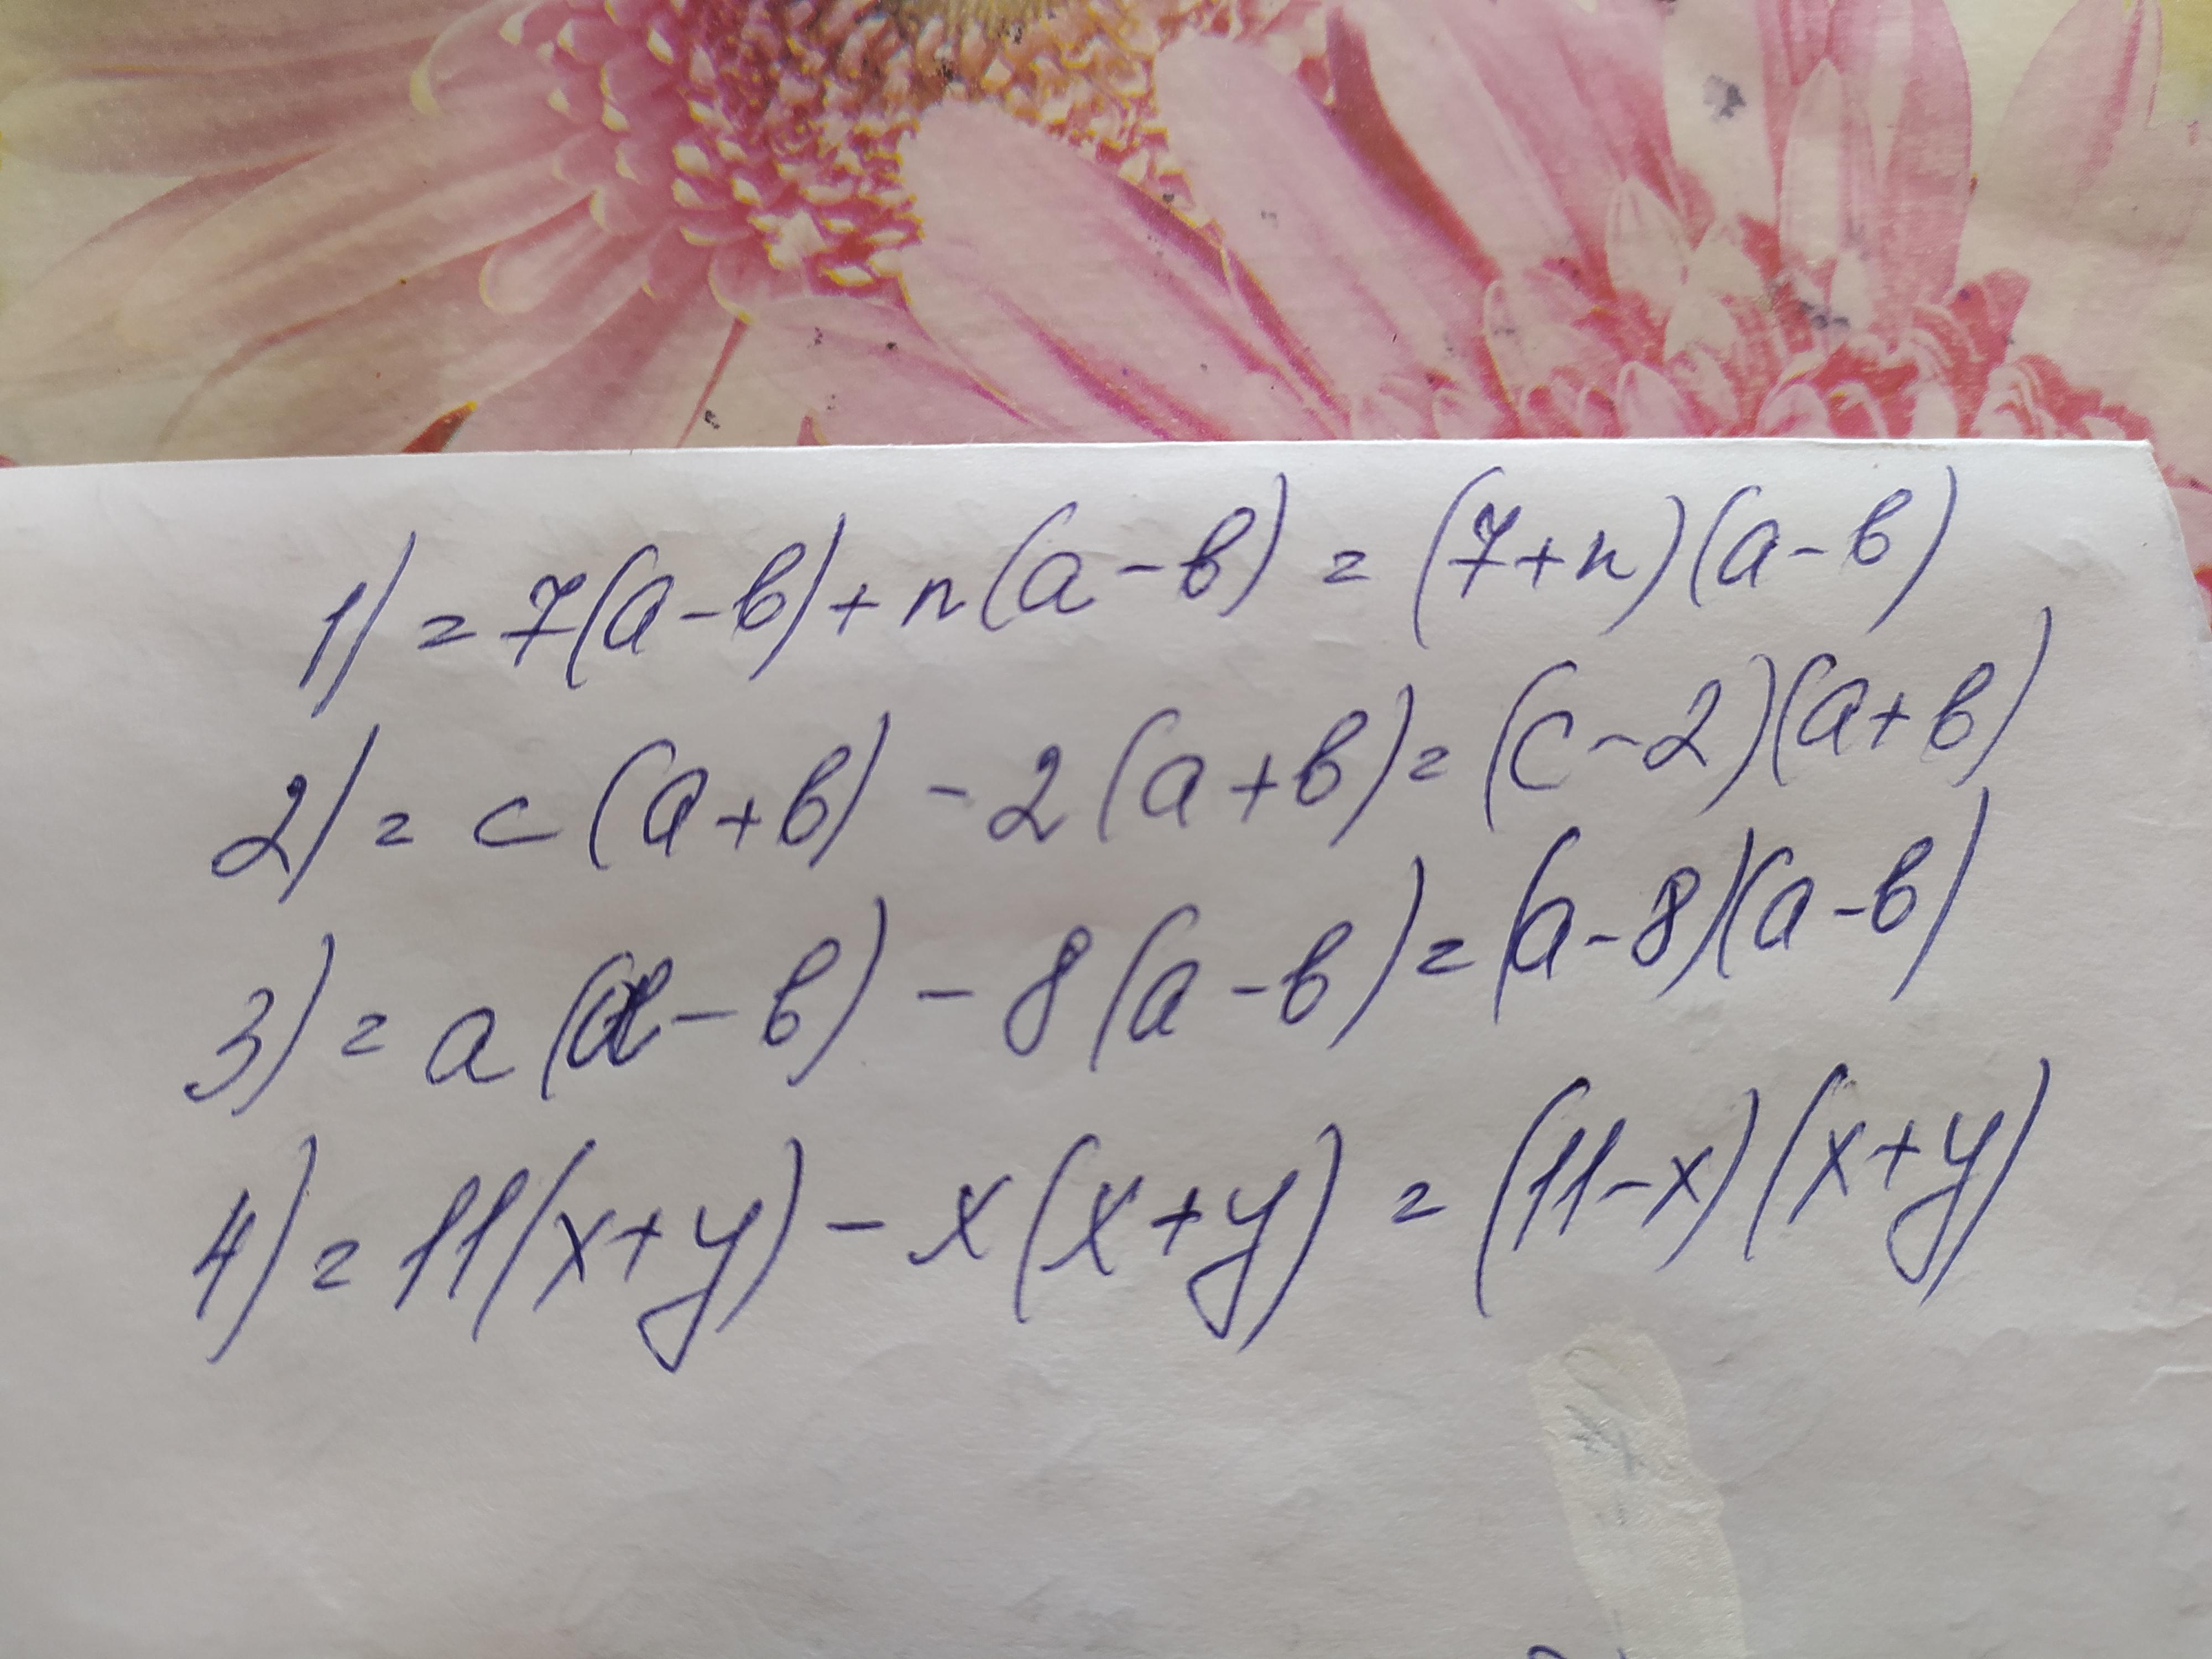 1) = 7(a-b)+n(a-b) = (7+n)(a-b)
2) = c(a+b) - 2(a+b) = (c-2)(a+b)
3) = a(a-b) - 8(a-b) = (a-8)(a-b)
4) = 11(x+y) - x(x+y) = (11-x)(x+y)